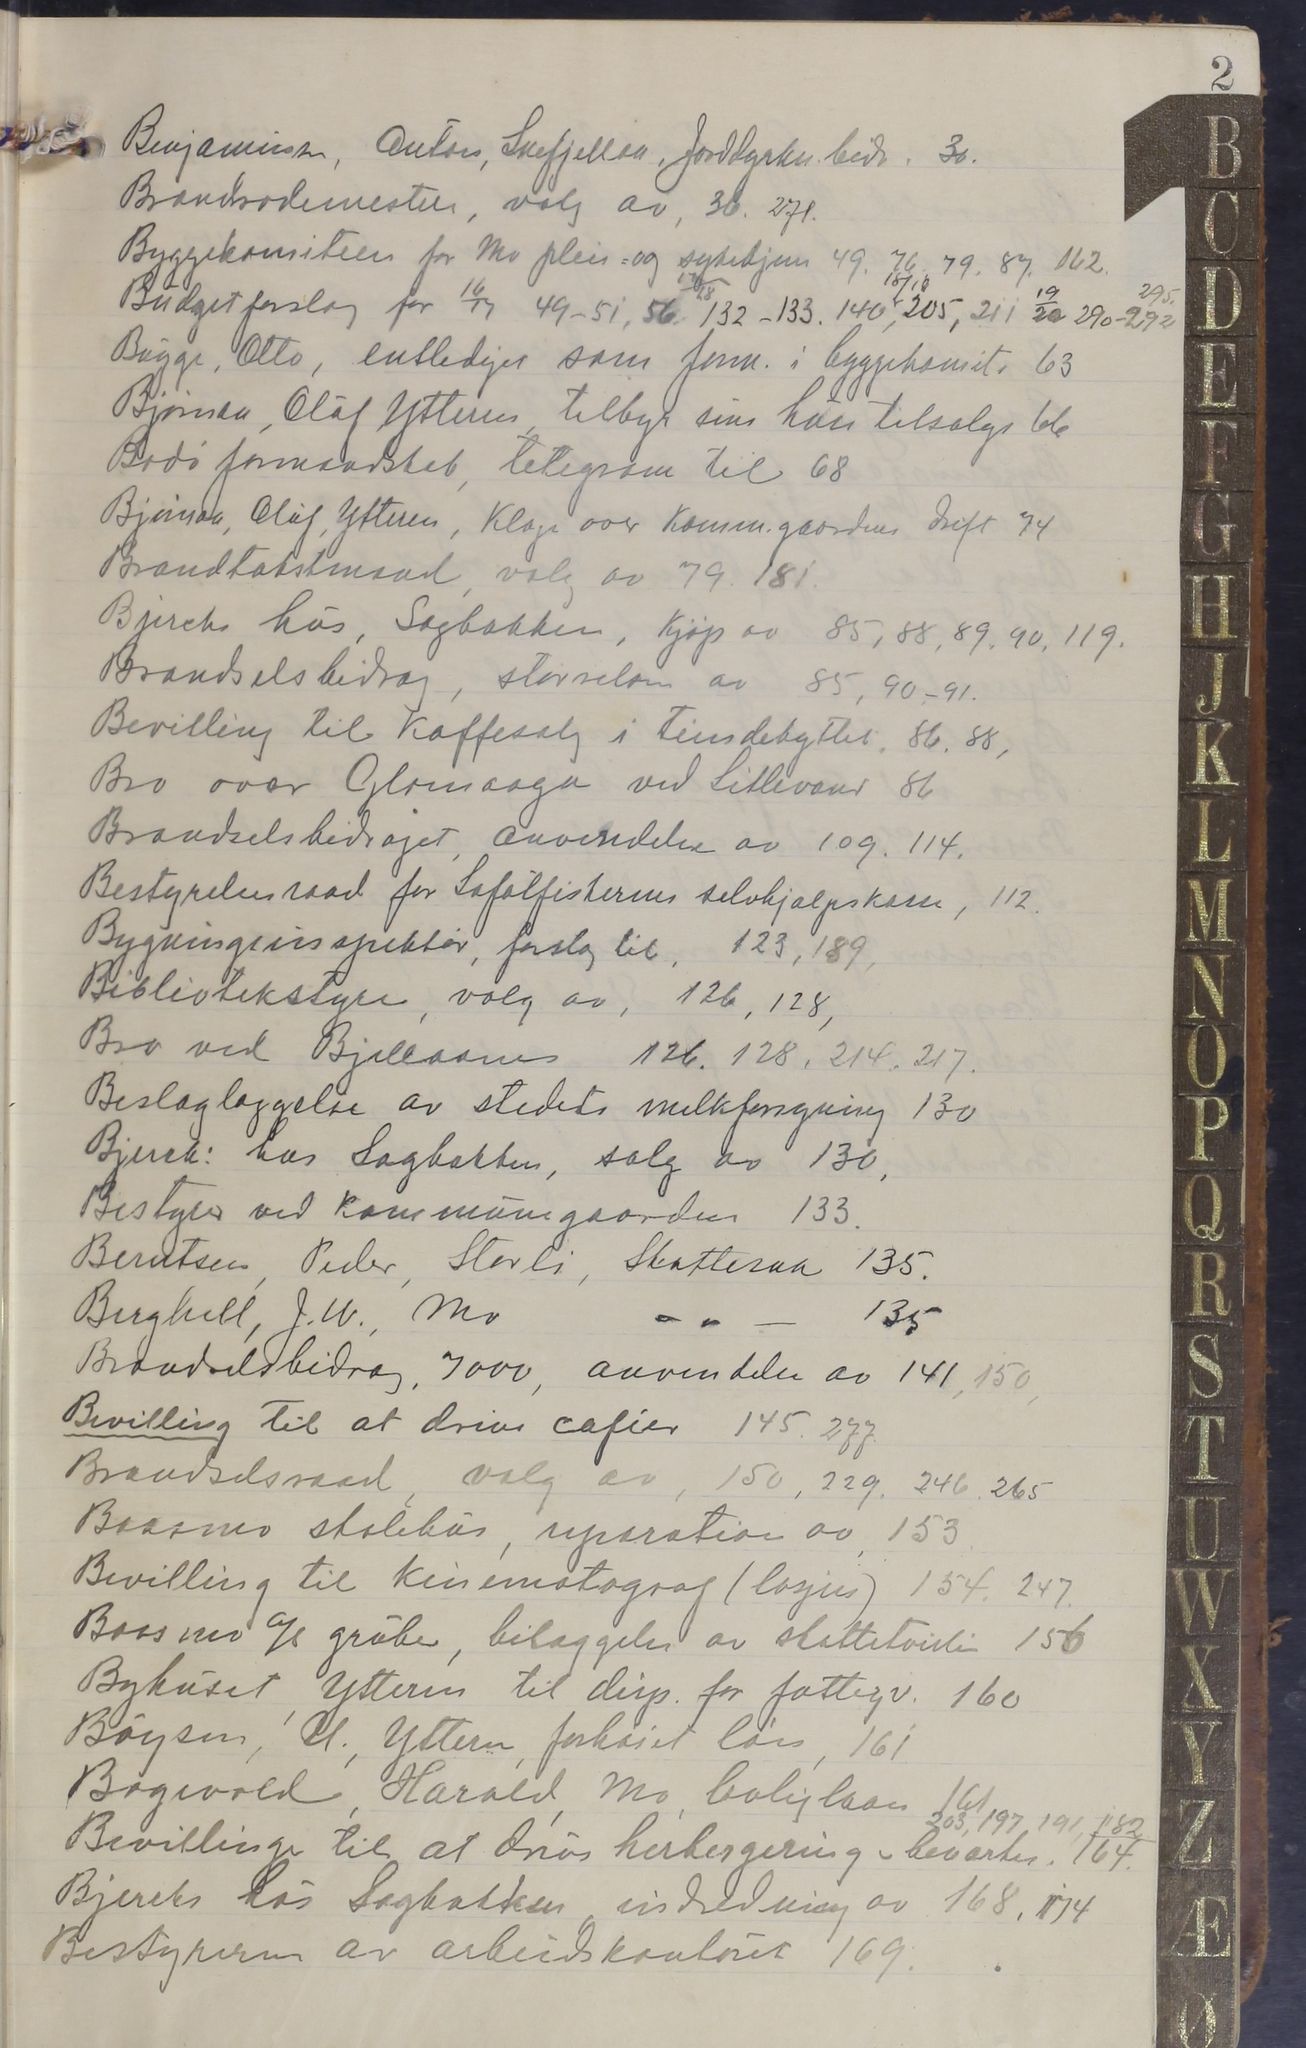 2
Benjaminsen, Anton, Snefjellaa, Jorddyrkn. bidr. 30.
Brandrodemester, valg av, 36. 271.
Byggekomiteen for Mo pleie- og sykehjem 49. 76. 79. 87. 162.
Budgetforslag for 16/17 49-51, 56. 17/18 132-133. 140, 18/19 205, 211 19/20 290-292 295.
Bugge, Otto, entlediges som form. i byggekomite 63
Bjørnaa, Oluf Ytteren, tilbyr sine hus tilsalgs 66
Bodø formandskab, telegram til 68
Bjørnaa, Oluf, Ytteren, Klage over Komm.gaardens drift 74
Brandtakstmænd, valg av 79. 181.
Bjercks hus, Sagbakken, kjøp av 85, 88, 89, 90, 119.
Brændselsbidrag, størrelsen av 85, 90-91.
Bevilling til Kaffesalg i 86, 88,
Bro over Glomaaga ved Litlevand 86
Brændselsbidraget, anvendelse av 109. 114.
Bestyrelsesraad for Lofotfiskernes selvhjælpskasse, 112.
Bygningsinspektør, forslag til, 123, 189,
Bibliotekstyre, valg av, 126, 128,
Bro ved Bjellaanes 126. 128. 214. 217.
Beslaglæggelse av stedets melkforsyning 130
Bjercks hus Sagbakken, salg av 130,
Bestyrer ved Kommunegaarden 133.
Berntsen, Peder, Storli, Skattesak 135.
Berghell, J. W., Mo - " - 135
Brændselsbidrag, 7000, anvendelse av 141, 150,
Bevilling til at drive caféer 145. 277.
Brændselsraad, valg av, 150, 229. 246. 265
Baasmo skolehus, reparation av, 153.
Bevilling til Kinematograf (losjens) 154. 247.
Baasmo A/S gruber, bilæggelse av skattetvist 156
Byhuset, Ytteren til disp. for fattigv. 160
Bøysen, U., Ytteren, forhøiet løn, 161
Bogevold, Harald, Mo, boliglaan 161
203, 197, 191, 182
Bevillinge til at drive herbergering - bevertn. 164.
Bjercks hus Sagbakken, indredning av 168, 174
Bestyreren av arbeidskontoret 169.
B
C
D
E
F
G
H
J
K
L
M
N
O
P
Q
R
S
T
U
W
X
Y
Z
Æ
Ø